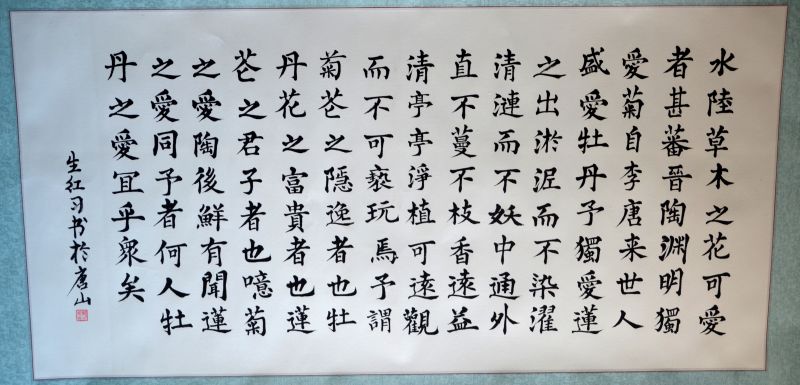 水陸草木之花可愛
者甚蕃晉陶淵明獨
愛菊自李唐来世人
盛愛牡丹予獨愛蓮
之出淤泥而不染濯
清漣而不妖中通外
直不蔓不枝香遠益
清亭亭淨植可遠觀
而不可褻玩焉予謂
菊芲之隱逸者也牡
丹花之富貴者也蓮
芲之君子者也噫菊
之愛陶後鮮有聞蓮
之愛同予者何人牡
丹之愛宜乎衆矣
生红习书於唐山